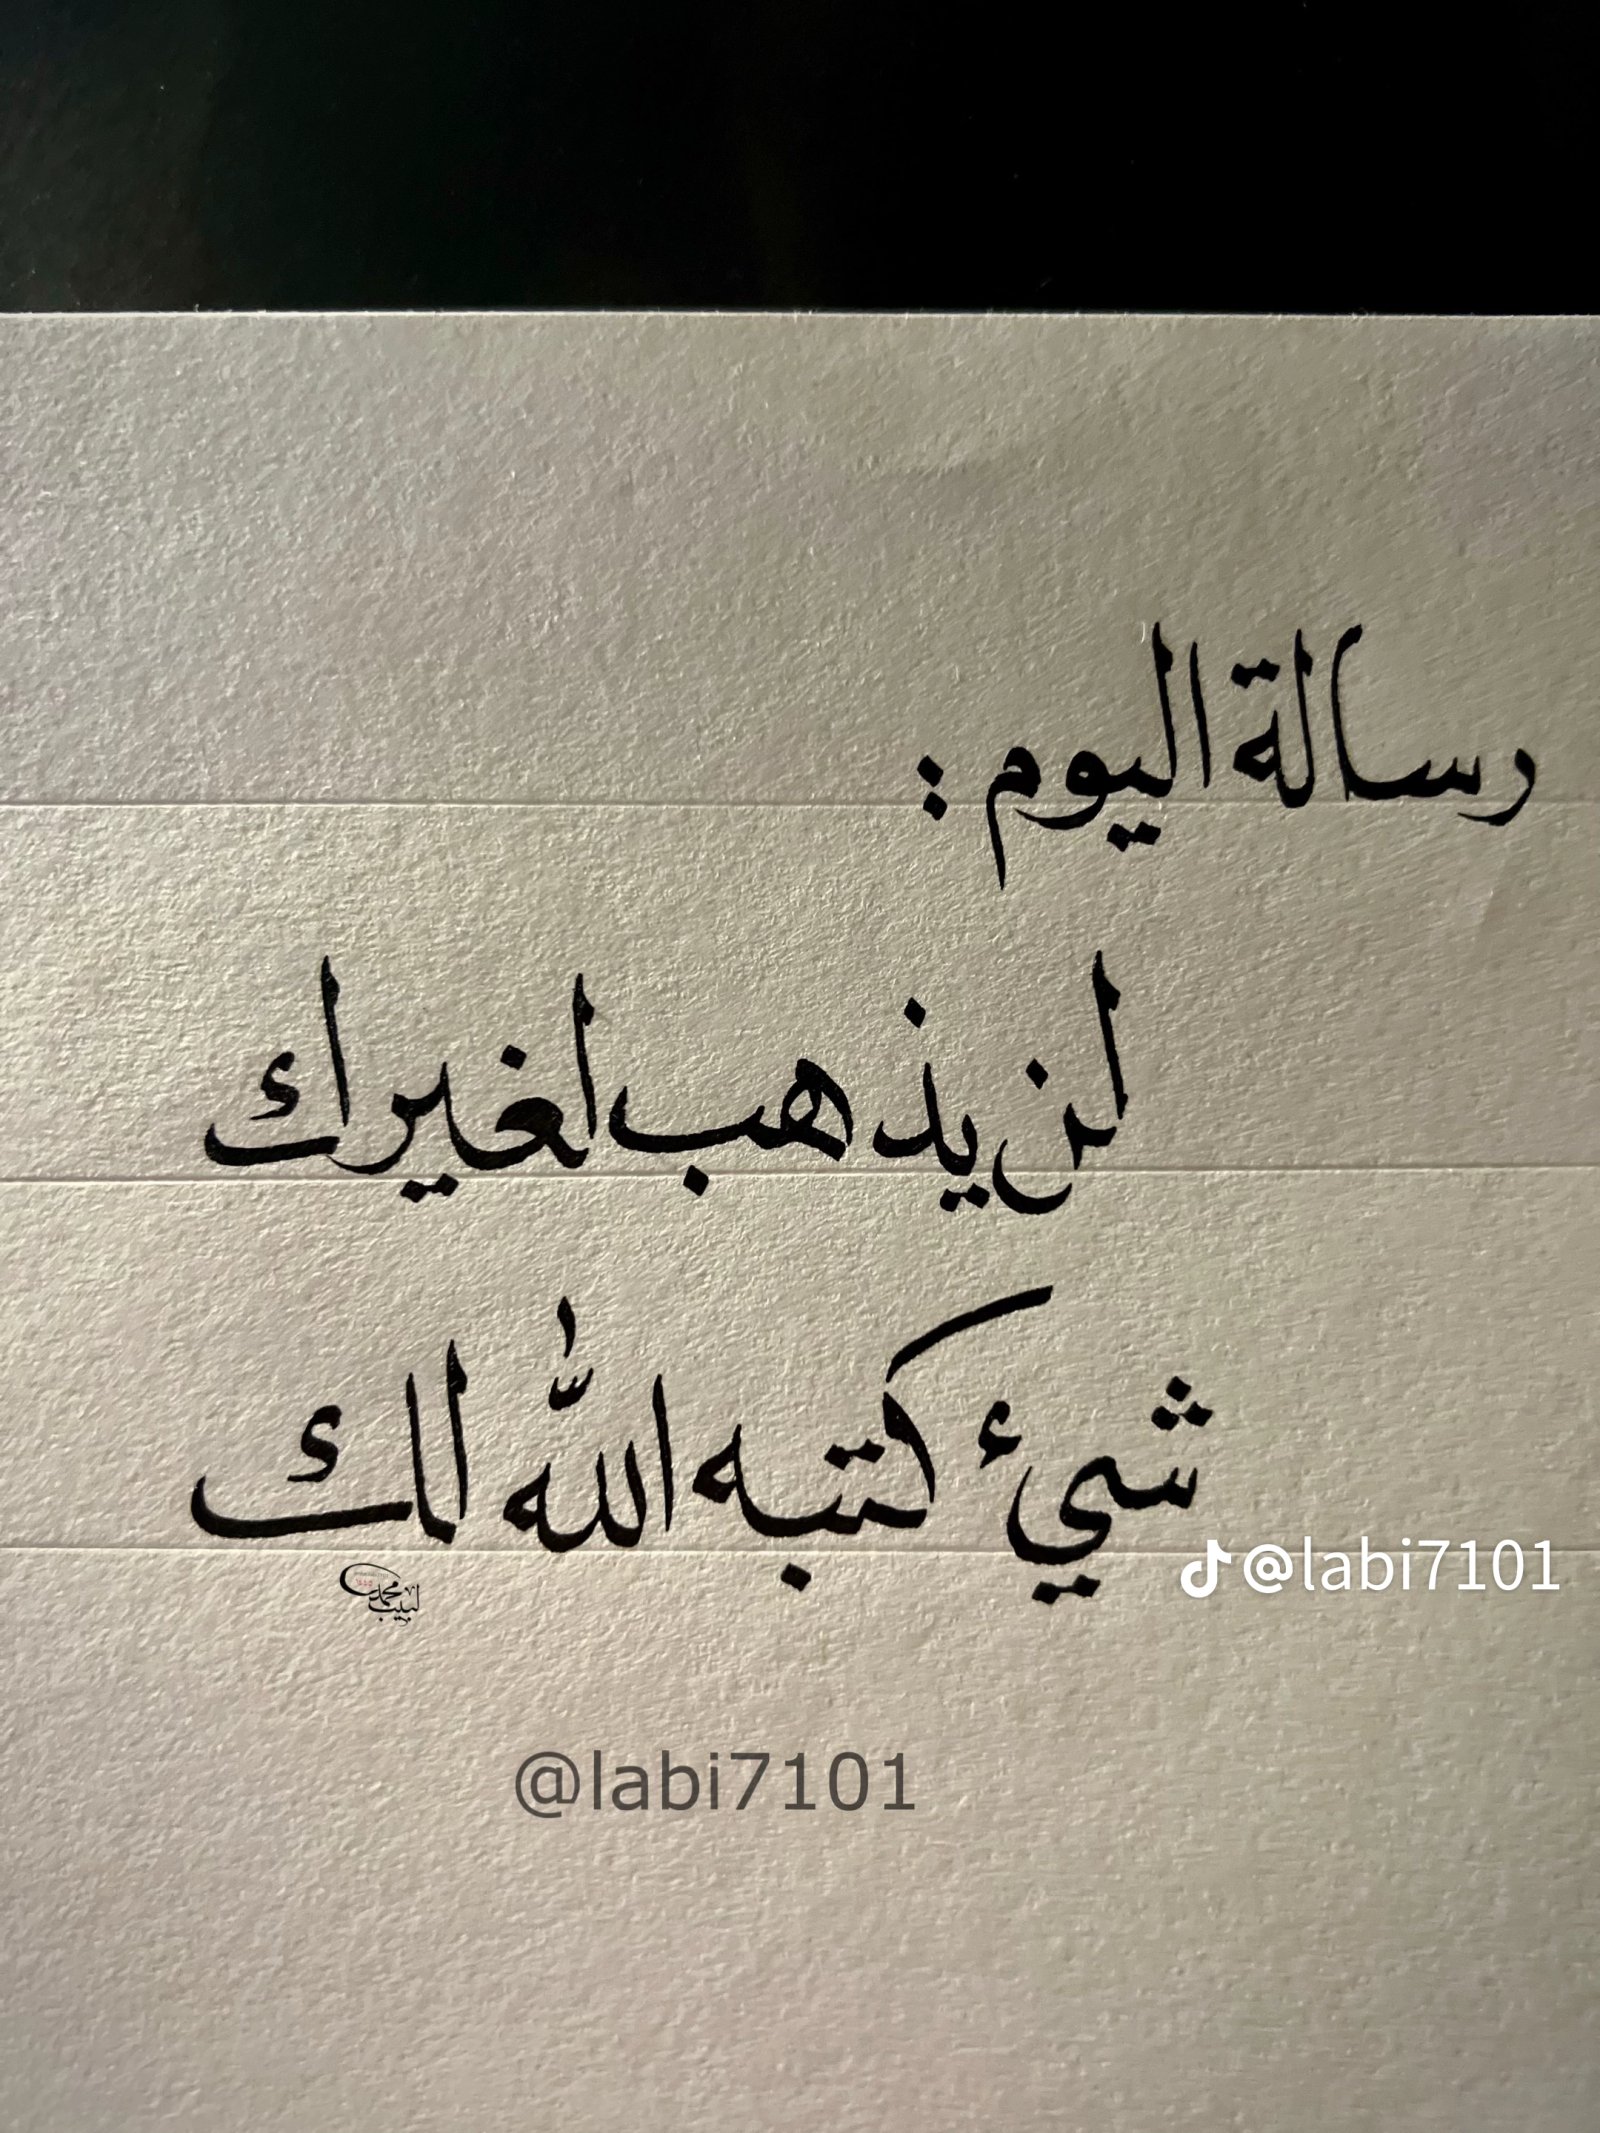 رسالة اليوم :
لن يذهب لغيرك
شيئ كتبه الله لك
لبيب محمد
@labi7101
@labi7101